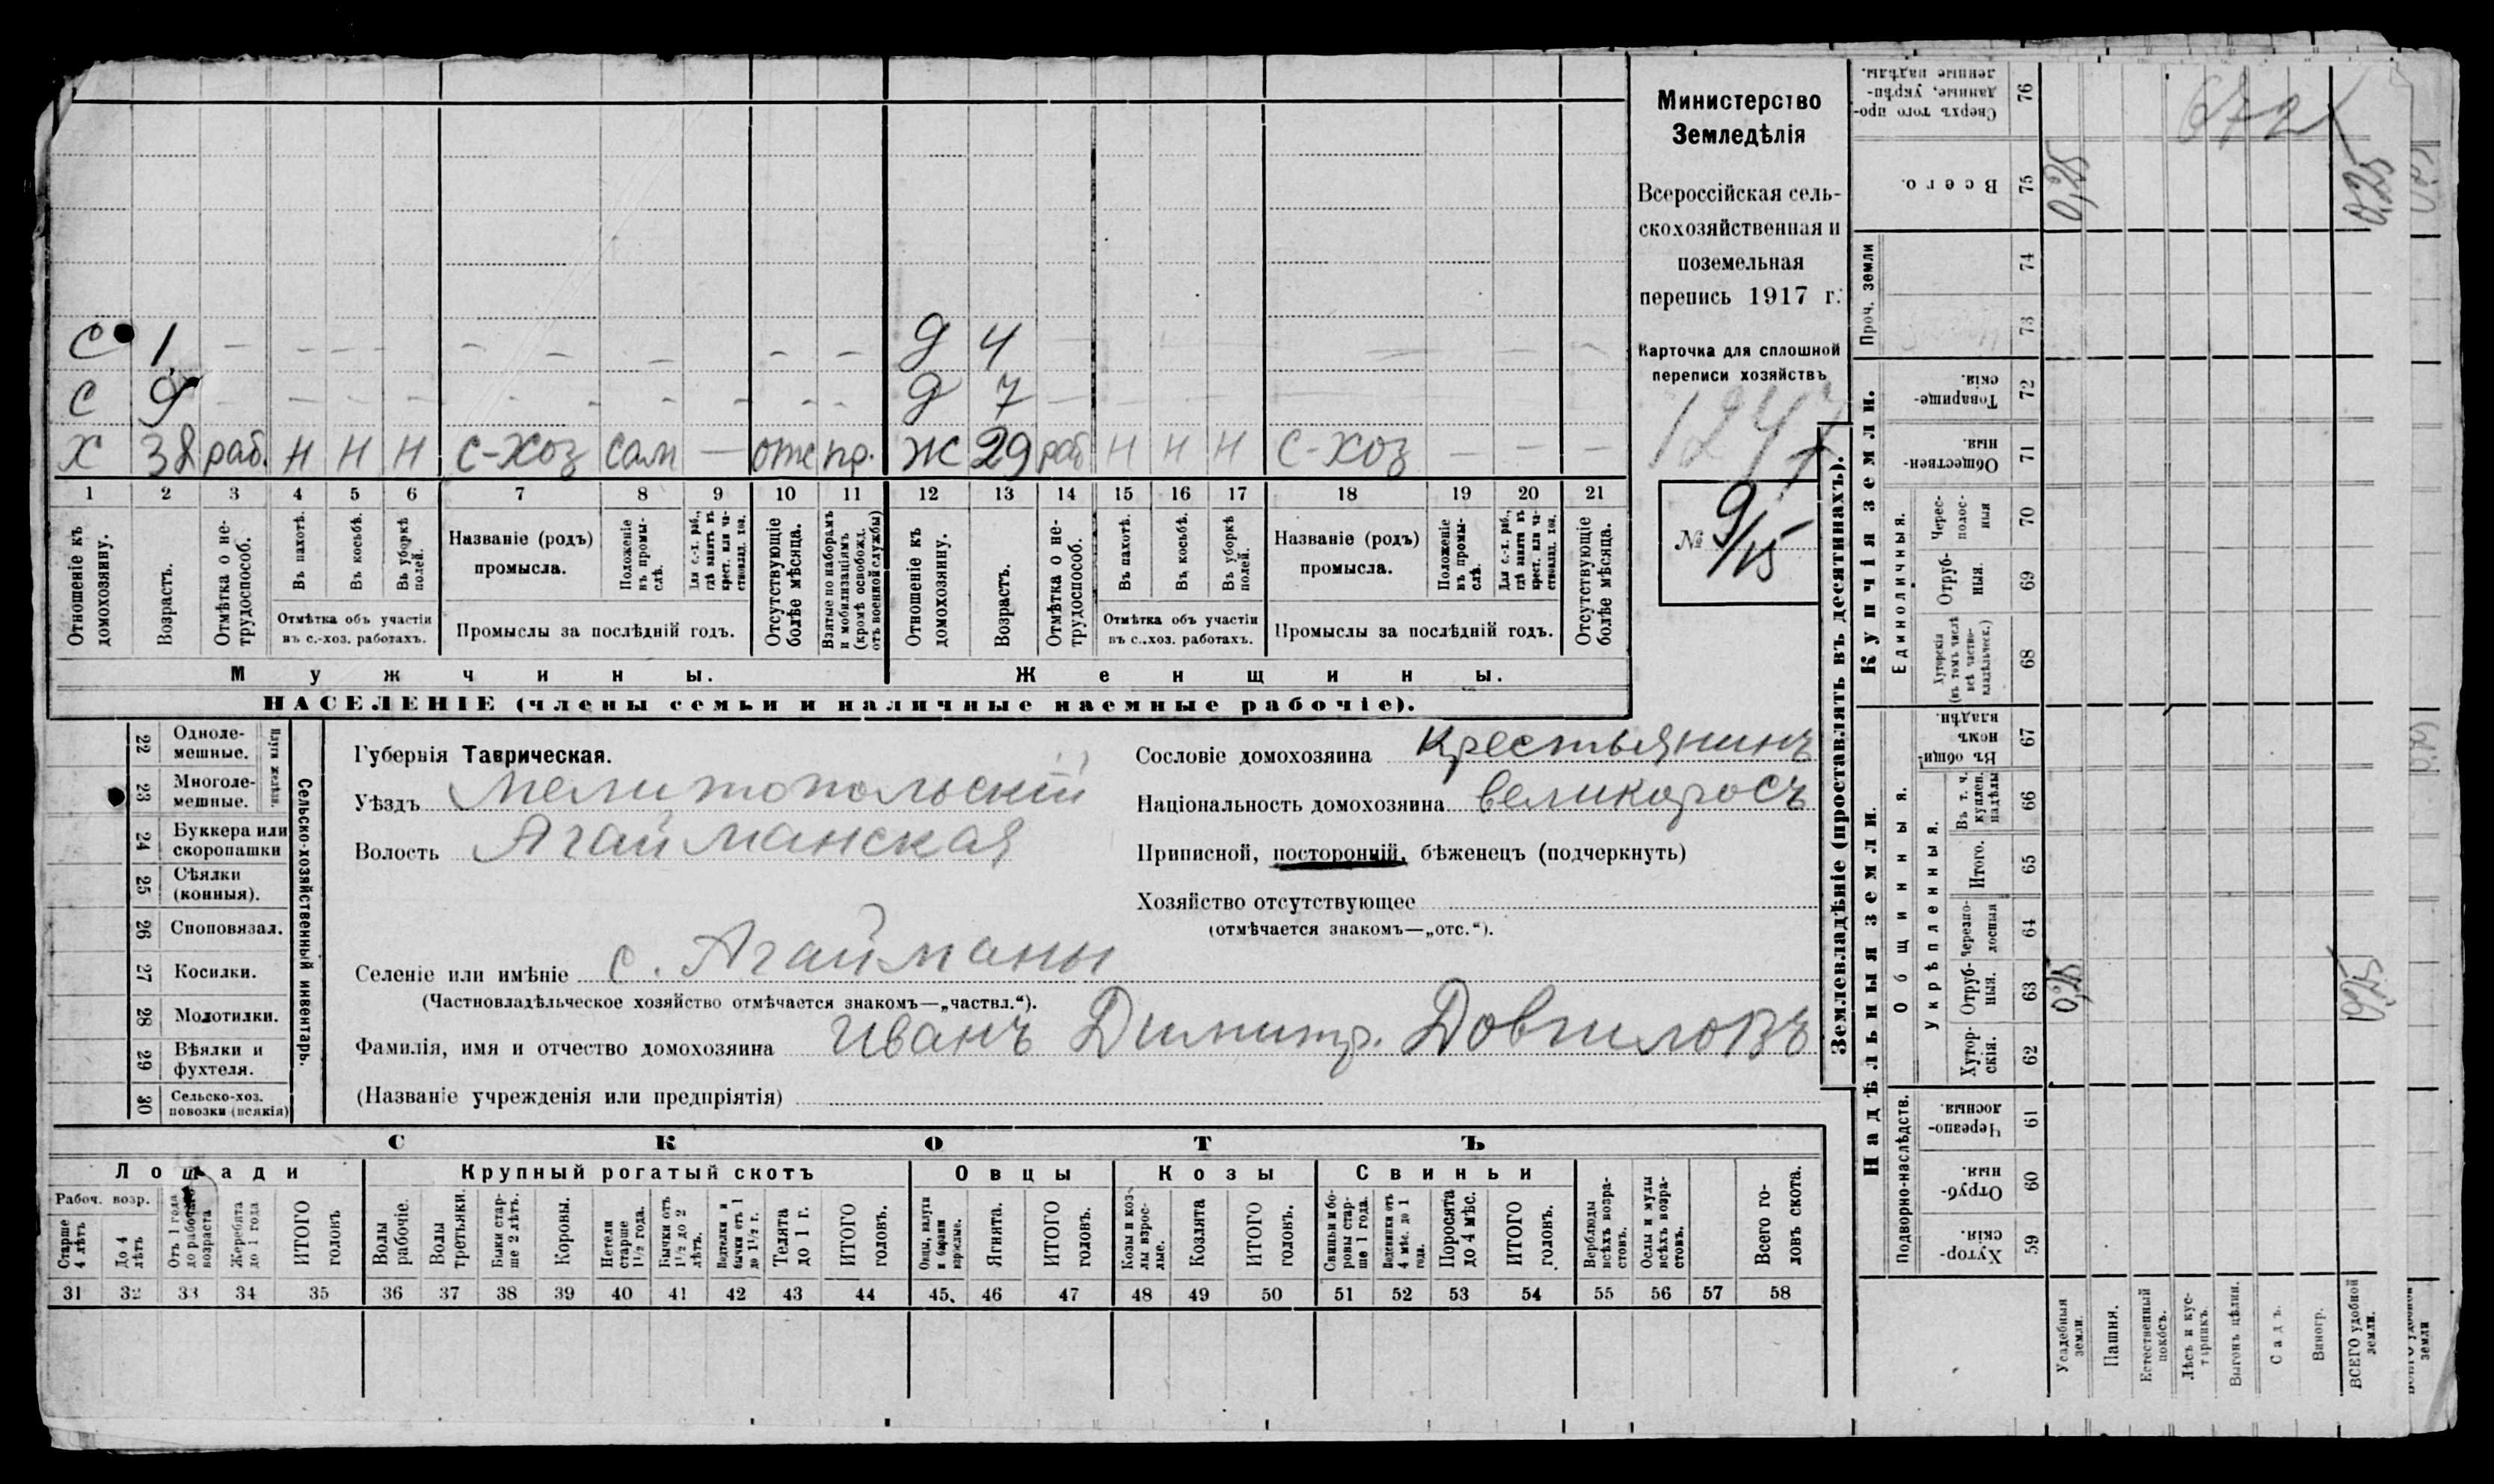 С 1 — — — — — — — — — Д 4 — — — — — — — —
С 9 — — — — — — — — — Д 7 — — — — — — — —
Х 38 раб. Н Н Н С-Хоз сам — отс пр. Ж 29 раб Н Н Н С-Хоз — — —
1 2 3 4 5 6 7 8 9 10 11 12 13 14 15 16 17 18 19 20 21
Отношеніе къ домохозяину.
Возрастъ.
Отмѣтка о не-
трудоспособ.
Въ пахотѣ.
Въ косьбѣ.
Въ уборкѣ
полей.
Отмѣтка объ участіи
въ с.-хоз. работахъ.
Названіе (родъ)
промысла.
Положеніе
въ промы-
слѣ.
Для с.-х. раб.,
гдѣ занятъ въ
крест. или ча-
стновлад. хоз.
Промыслы за послѣдній годъ.
Отсутствующіе
болѣе мѣсяца.
Взятые по наборамъ
и мобилизаціямъ
(кромѣ освобожд.
отъ военной службы)
Отношеніе къ
домохозяину.
Возрастъ.
Отмѣтка о не-
трудоспособ.
Въ пахотѣ.
Въ косьбѣ.
Въ уборкѣ
полей.
Отмѣтка объ участіи
въ с.-хоз. работахъ.
Названіе (родъ)
промысла.
Положеніе
въ промы-
слѣ.
Для с.-х. раб.,
гдѣ занята въ
крест. или ча-
стновлад. хоз.
Промыслы за послѣдній годъ.
Отсутствующіе
болѣе мѣсяца.
Мужчины.
Женщины.
НАСЕЛЕНІЕ (члены семьи и наличные наемные рабочіе).
Министерство
Земледѣлія
Всероссійская сель-
скохозяйственная и
поземельная
перепись 1917 г.
Карточка для сплошной
переписи хозяйствъ
1247
№ 9/15
22 Одноле-
мешные.
23 Многоле-
мешные.
Плуги желѣзн.
24 Буккера или
скоропашки
25 Сѣялки
(конныя).
26 Сноповязал.
27 Косилки.
28 Молотилки.
29 Вѣялки и
фухтеля.
30 Сельско-хоз.
повозки (всякія)
Сельско-хозяйственный инвентарь.
Губернія Таврическая.
Уѣздъ Мелитопольскій
Волость Агайманская
Селеніе или имѣніе с. Агайманы
(Частновладѣльческое хозяйство отмѣчается знакомъ—„частвл.“).
Фамилія, имя и отчество домохозяина Иванъ Димитр. Довгиловъ
(Названіе учрежденія или предпріятія)
Сословіе домохозяина Крестьянинъ
Національность домохозяина великоросъ
Приписной, посторонній, бѣженецъ (подчеркнуть)
Хозяйство отсутствующее
(отмѣчается знакомъ—„отс.“).
СКОТЪ
Лошади
Крупный рогатый скотъ
Овцы
Козы
Свиньи
Рабоч. возр.
Старше
4 лѣтъ
До 4
лѣтъ
Отъ 1 года
до рабочаго
возраста
Жеребята
до 1 года
ИТОГО
головъ
Волы
рабочіе.
Волы
третьяки.
Быки стар-
ше 2 лѣтъ.
Коровы.
Нетели
старше
1½ года.
Бычки отъ
1½ до 2
лѣтъ.
Подтелки и
бычки отъ 1
до 1½ г.
Телята
до 1 г.
ИТОГО
головъ.
Овцы, валухи
и бараны
взрослые.
Ягнята.
ИТОГО
головъ.
Козы и коз-
лы взрос-
лые.
Козлята
ИТОГО
головъ.
Свиньи и бо-
ровы стар-
ше 1 года.
Подсвинки отъ
4 мѣс. до 1
года.
Поросята
до 4 мѣс.
ИТОГО
головъ.
Верблюды
всѣхъ возра-
стовъ.
Ослы и мулы
всѣхъ возра-
стовъ.
Всего го-
ловъ скота.
31 32 33 34 35 36 37 38 39 40 41 42 43 44 45. 46 47 48 49 50 51 52 53 54 55 56 57 58
Землевладѣніе (проставлять въ десятинахъ).
Купчія земли.
Надѣльныя земли.
76 Сверхъ того про-
данные, укрѣп-
ленные надѣлы.
672
75 Всего.
0,25
0,25
Проч. земли
74
73
72 Товарище-
скія.
71 Обществен-
ныя.
Единоличныя.
70 Черес-
полос-
ныя
69 Отруб-
ныя.
68 Хуторскія
(въ томъ числѣ
всѣ частно-
владѣльческ.)
Общинныя.
67 Въ общи-
номъ
владѣн.
Укрѣпленныя.
66 Въ т. ч.
куплен.
надѣлы
65 Итого.
64 Черезпо-
лосныя
63 Отруб-
ныя.
0,25
0,25
62 Хутор-
скія.
Подворно-наслѣдств.
61 Черезпо-
лосныя.
60 Отруб-
ныя.
59 Хутор-
скія.
Усадебныя
земли.
Пашня.
Естественный
покосъ.
Лѣсъ и кус-
тарникъ.
Выгонъ цѣлин.
Садъ.
Виногр.
ВСЕГО удобной
земли.